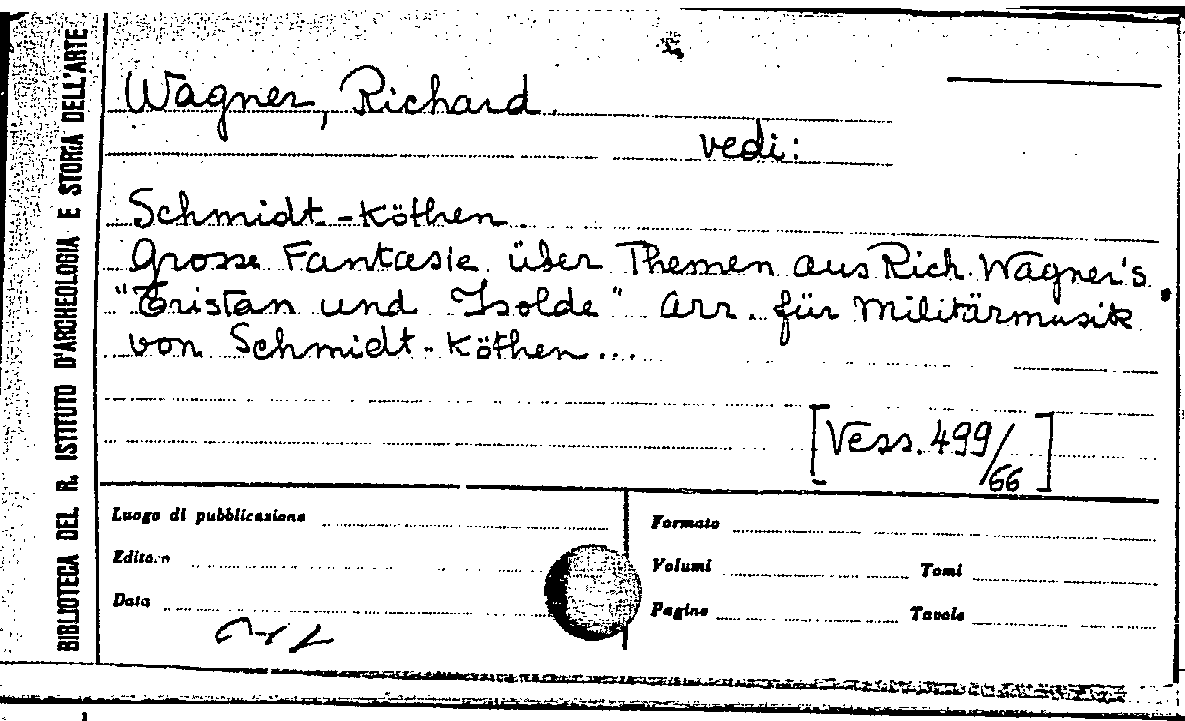 BIBLIOTECA DEL R. ISTITUTO D'ARCHEOLOGIA E STORIA DELL'ARTE
Wagner, Richard.
vedi:
Schmidt-Köthen
Grosse Fantasie über Themen aus Rich. Wagner's
"Tristan und Isolde" Arr. für Militärmusik
von Schmidt-Köthen...
[Vess. 499/66]
Luogo di pubblicazione
Formato
Editore
Volumi
Tomi
Data
Pagine
Tavole